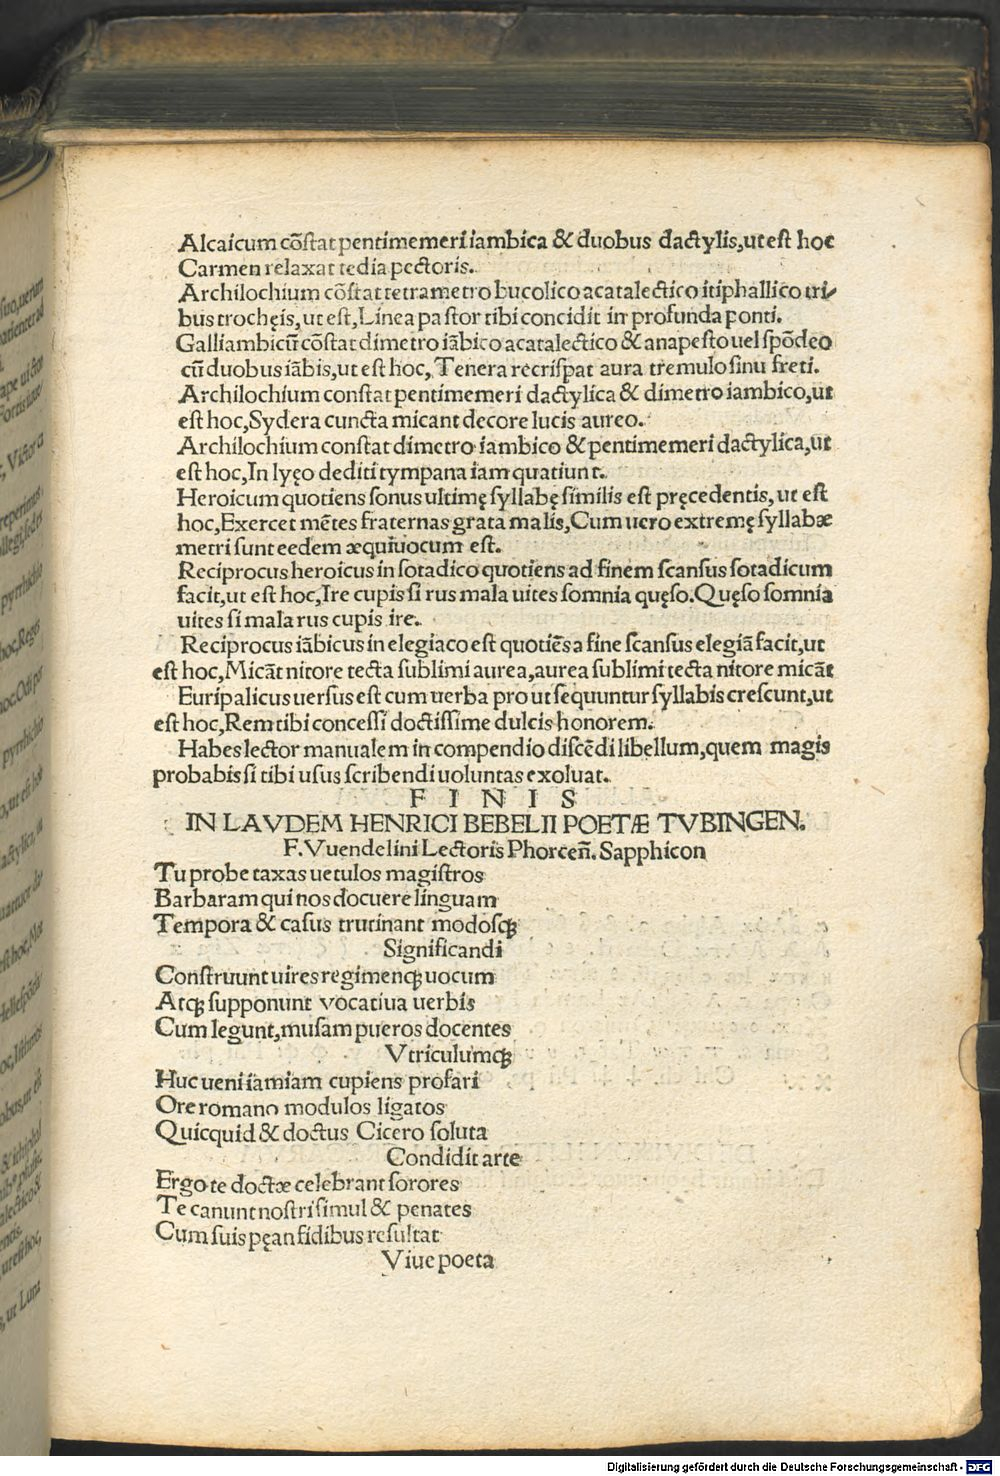 Alcaicum cõſtat pentimemeri iambica & duobus dactylis,ut eſt hoc
Carmen relaxat tedia pectoris.
Archilochium cõſtat tetrametro bucolico acatalectico itiphallico tri⸗
bus trochęis,ut eſt,Linea paſtor tibi concidit in profunda ponti.
Galliambicũ cõſtat dimetro iãbico acatalectico & anapeſto uel ſpõdeo
cũ duobus iãbis,ut eſt hoc, Tenera recriſpat aura tremulo ſinu freti.
Archilochium conſtat pentimemeri dactylica & dimetro iambico,ut
eſt hoc,Sydera cuncta micant decore lucis aureo.
Archilochium conſtat dimetro iambico & pentimemeri dactylica,ut
eſt hoc,In lyęo dediti tympana iam quatiunt.
Heroicum quotiens ſonus ultimę ſyllabę ſimilis eſt pręcedentis, ut eſt
hoc,Exercet mẽtes fraternas grata malis,Cum uero extremę ſyllabæ
metri ſunt eedem æquiuocum eſt.
Reciprocus heroicus in ſotadico quotiens ad finem ſcanſus ſotadicum
facit,ut eſt hoc,Ire cupis ſi rus mala uites ſomnia quęſo.Quęſo ſomnia
uites ſi mala rus cupis ire.
Reciprocus iãbicus in elegiaco eſt quotiẽs a fine ſcanſus elegiã facit,ut
eſt hoc,Micãt nitore tecta ſublimi aurea,aurea ſublimi tecta nitore micãt
Euripalicus uerſus eſt cum uerba pro ut ſequuntur ſyllabis creſcunt,ut
eſt hoc,Rem tibi conceſſi doctiſſime dulcis honorem.
Habes lector manualem in compendio diſcẽdi libellum,quem magis
probabis ſi tibi uſus ſcribendi uoluntas exoluat.
F I N I S
IN LAVDEM HENRICI BEBELII POETÆ TVBINGEN.
F.Vuendelini Lectoris Phorceñ. Sapphicon
Tu probe taxas uetulos magiſtros
Barbaram qui nos docuere linguam
Tempora & caſus trutinant modoſꝗ
Significandi
Conſtruunt uires regimenꝗ uocum
Atꝗ ſupponunt vocatiua uerbis
Cum legunt,muſam pueros docentes
Vtriculumꝗ
Huc ueni iamiam cupiens profari
Ore romano modulos ligatos
Quicquid & doctus Cicero ſoluta
Condidit arte
Ergo te doctæ celebrant ſorores
Te canunt noſtri ſimul & penates
Cum ſuis pęan fidibus reſultat
Viue poeta
Digitalisierung gefördert durch die Deutsche Forschungsgemeinschaft - DFG